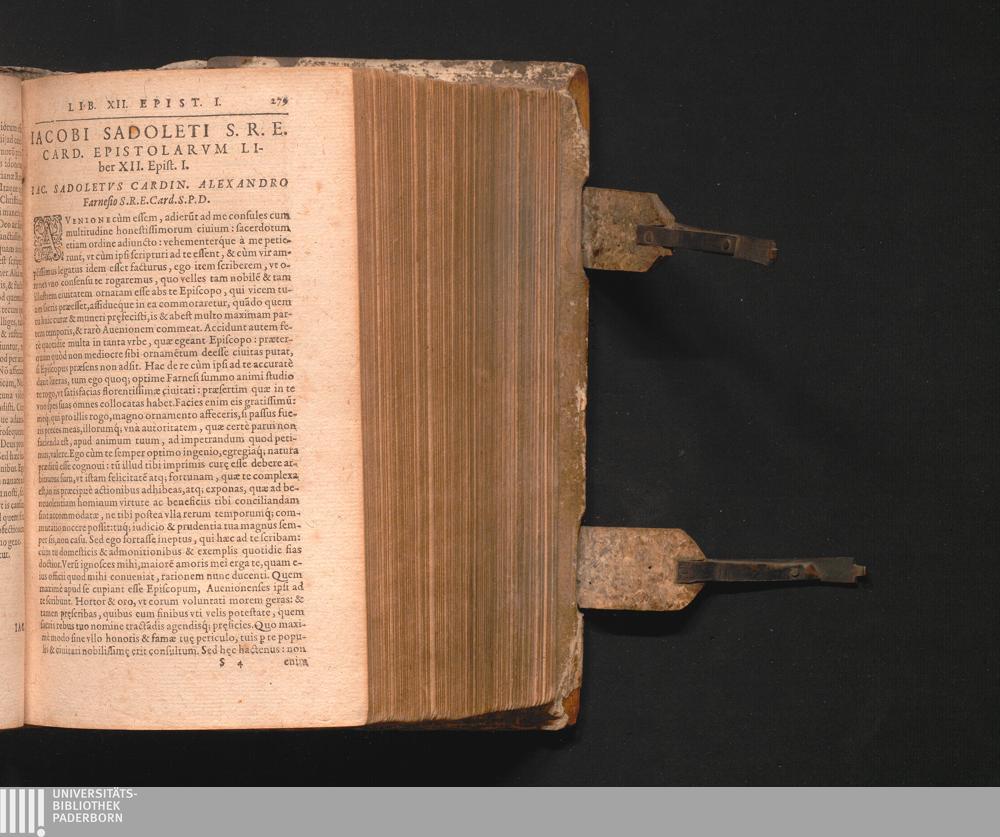 LIB. XII. EPIST. I. 279
IACOBI SADOLETI S. R. E.
CARD. EPISTOLARVM LI-
ber XII. Epiſt. I.
IAC. SADOLETVS CARDIN. ALEXANDRO
Farneſio S.R.E.Card.S.P.D.
AVENIONE cùm eſſem, adierūt ad me conſules cum
multitudine honeſtiſſimorum ciuium: ſacerdotum
etiam ordine adiuncto: vehementerque à me petie-
runt, vt cùm ipſi ſcripturi ad te eſſent, & cùm vir am-
pliſsimus legatus idem eſſet facturus, ego item ſcriberem, vt o-
mnes vno conſenſu te rogaremus, quo velles tam nobilē & tam
illuſtrem ciuitatem ornatam eſſe abs te Epiſcopo, qui vicem tu-
am ſacris præeſſet, aſſidueque in ea commoraretur, quādo quem
tu huic curæ & muneri præfeciſti, is & abeſt multo maximam par-
tem temporis, & rarò Auenionem commeat. Accidunt autem fe-
rè quotidie multa in tanta vrbe, quæ egeant Epiſcopo: præter-
quàm quòd non mediocre ſibi ornamētum deeſſe ciuitas putat,
ſi Epiſcopus præſens non adſit. Hac de re cùm ipſi ad te accuratè
dent literas, tum ego quoq; optime Farneſi ſummo animi ſtudio
te rogo, vt ſatisfacias florentiſſimæ ciuitati: præſertim quæ in te
vno ſpes ſuas omnes collocatas habet. Facies enim eis gratiſſimū:
meq; qui pro illis rogo, magno ornamento affeceris, ſi paſſus fue-
ris preces meas, illorumq; vnà autoritatem, quæ certè parui non
facienda eſt, apud animum tuum, ad impetrandum quod peti-
mus, valere. Ego cùm te ſemper optimo ingenio, egregiaq; natura
præditū eſſe cognoui: tū illud tibi imprimis curę eſſe debere ar-
bitratus ſum, vt iſtam felicitatē atq; fortunam, quæ te complexa
eſt, in iis præcipuè actionibus adhibeas, atq; exponas, quæ ad be-
neuolentiam hominum virtute ac beneficiis tibi conciliandam
ſint accommodatæ, ne tibi poſtea vlla rerum temporumq; com-
mutatio nocere poſſit: tuq; iudicio & prudentia tua magnus ſem-
per ſis, non caſu. Sed ego fortaſſe ineptus, qui hæc ad te ſcribam:
cùm tu domeſticis & admonitionibus & exemplis quotidie fias
doctior. Verū ignoſces mihi, maiorē amoris mei erga te, quam e-
ius officii quod mihi conueniat, rationem nunc ducenti. Quem
maximè apud ſe cupiant eſſe Epiſcopum, Auenionenſes ipſi ad
te ſcribunt. Hortor & oro, vt eorum voluntati morem geras: &
tamen pręſcribas, quibus eum finibus vti velis poteſtate, quem
ſacris rebus tuo nomine tractādis agendiſq; pręficies. Quo maxi-
mè modo ſine vllo honoris & famæ tuę periculo, tuis p te popu-
lis & ciuitati nobiliſſimę erit conſultum. Sed hęc hactenus: non
S 4 enim
UNIVERSITÄTS-
BIBLIOTHEK
PADERBORN